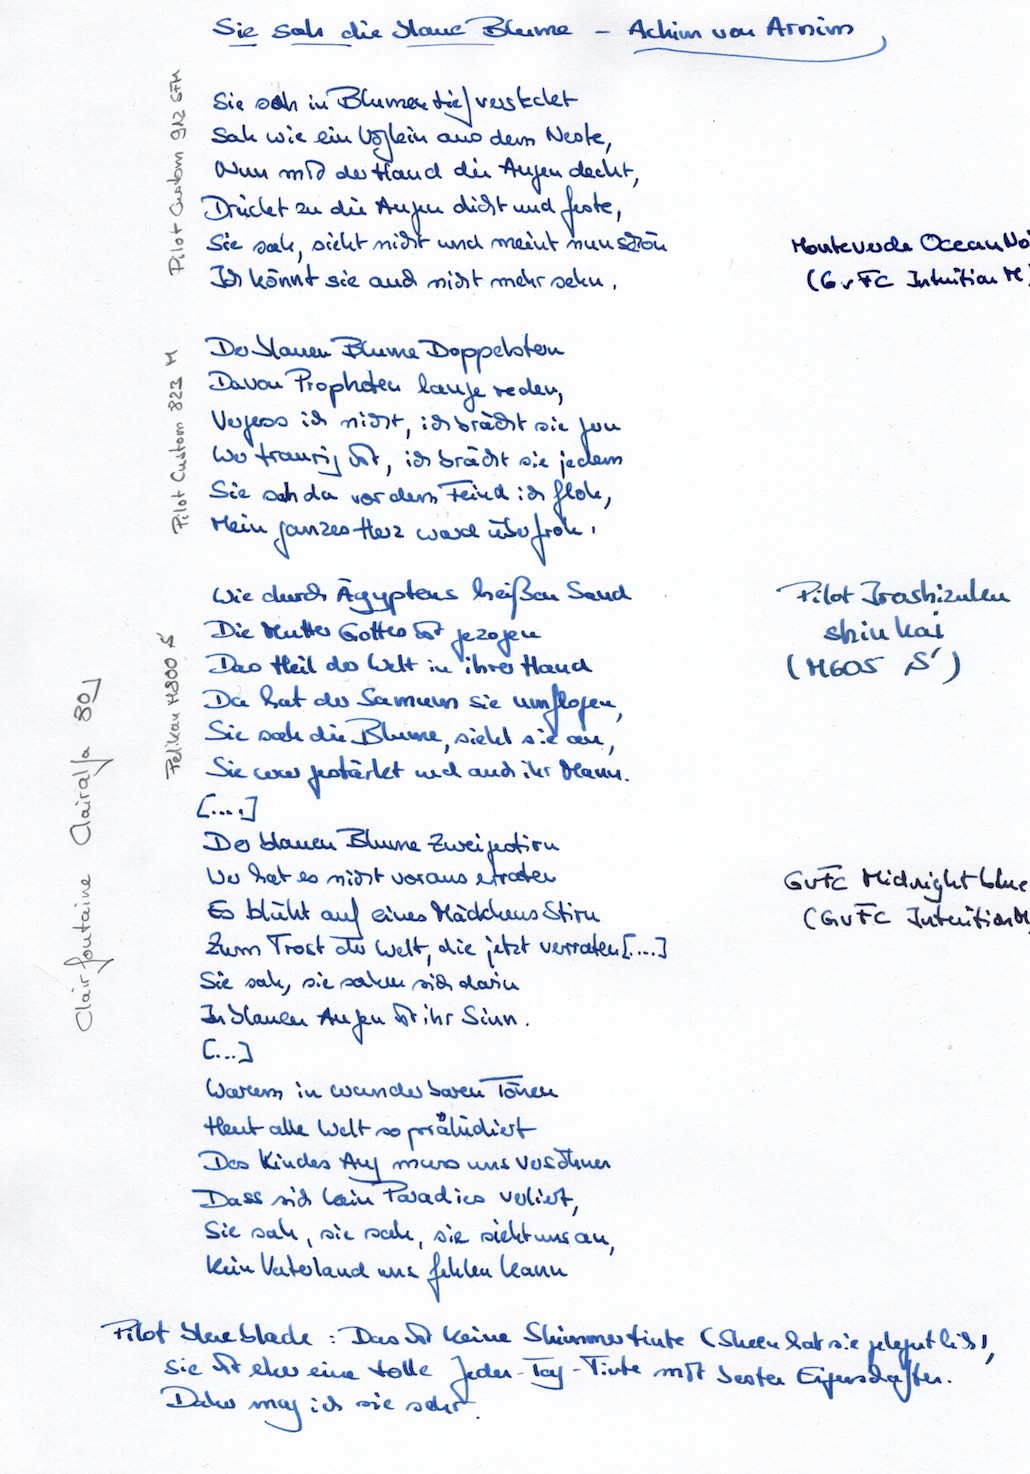 Sie sah die blaue Blume – Achim von Arnim
Pilot Custom 912 SFM
Sie sah in Blumen tief versteckt
Sah wie ein Vöglein aus dem Neste,
Nun mit der Hand die Augen deckt,
Drückt zu die Augen dicht und feste,
Sie sah, sieht nicht und meint nun schön
Ich könnt sie auch nicht mehr sehn.
Monteverde Ocean No
(GvFC Intuition M)
Pilot Custom 823 M
Der blauen Blume Doppelstern
Davon Propheten lange reden,
Vergess ich nicht, ich brächt sie gern
Wer traurig ist, ich brächt sie jedem
Sie sah da vor dem Feind ich floh,
Mein ganzes Herz ward überfroh.
Pelikan M800 S
Wie durch Ägyptens heißen Sand
Die Mutter Gottes ist gezogen
Das Heil der Welt in ihrer Hand
Da hat der Samum sie umflogen,
Sie sah die Blume, sieht sie an,
Sie war gestärkt und auch ihr Mann.
Pilot Iroshizuku
shin kai
(M605 S)
[....]
Der blauen Blume Zweigestirn
Wer hat es nicht voraus erraten
Es blüht auf eines Mädchens Stirn
Zum Trost der Welt, die jetzt verraten [....]
Sie sah, sie sahen sich darin
In blauen Augen ist ihr Sinn.
GvFC Midnight blue
(GvFC Intuition M)
[...]
Warum in wunderbaren Tönen
Heut alle Welt so präludiert
Des Kindes Aug muss uns versöhnen
Dass sich kein Paradies verliert,
Sie sah, sie sah, sie sieht uns an,
Kein Vaterland uns fehlen kann
Clairfontaine Clairalfa 80g
Pilot blue black : Das ist keine Shimmertinte (Sheen hat sie gelegentlich),
sie ist eher eine tolle Jeder-Tag-Tinte mit besten Eigenschaften.
Daher mag ich sie sehr.